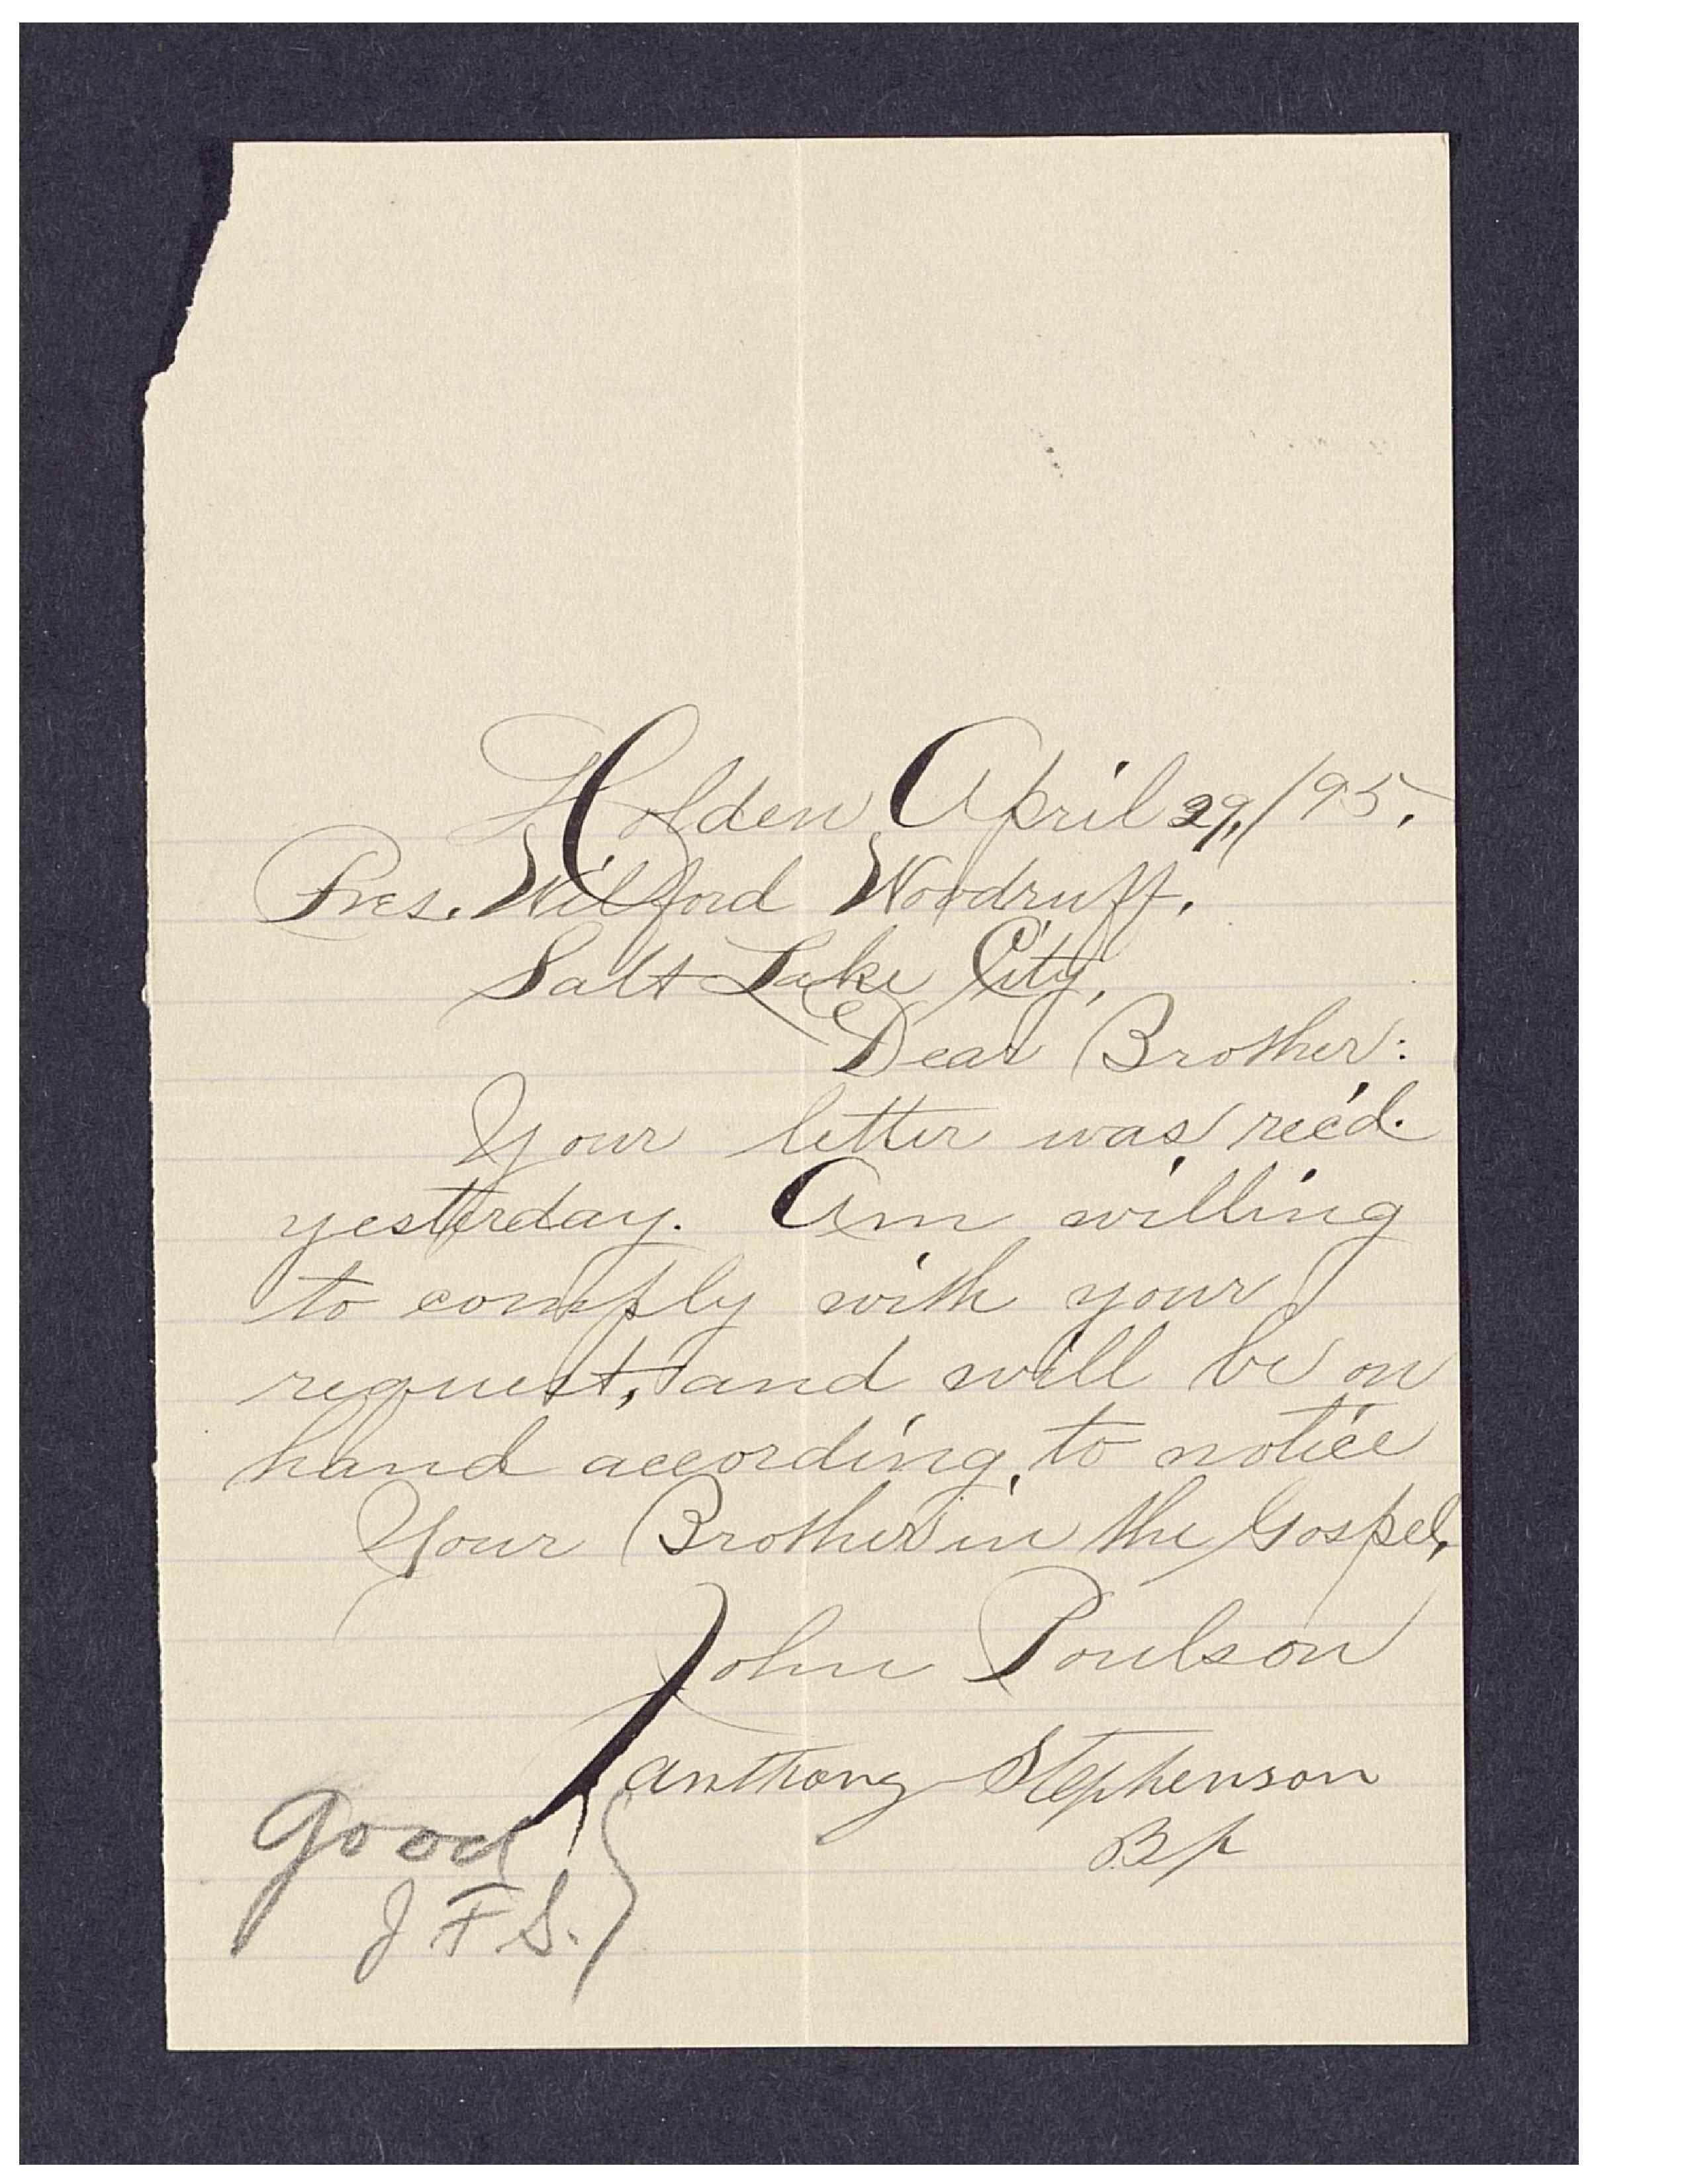 Holden April 29,/95.
Pres. Wilford Woodruff.
Salt Lake City,
Dear Brother:
Your letter was rec'd.
yesterday. Am willing
to comply with your
request, and will be on
hand according to notice
Your Brother in the Gospel,
John Poulson
Anthony Stephenson
Bp
Good
J F S.